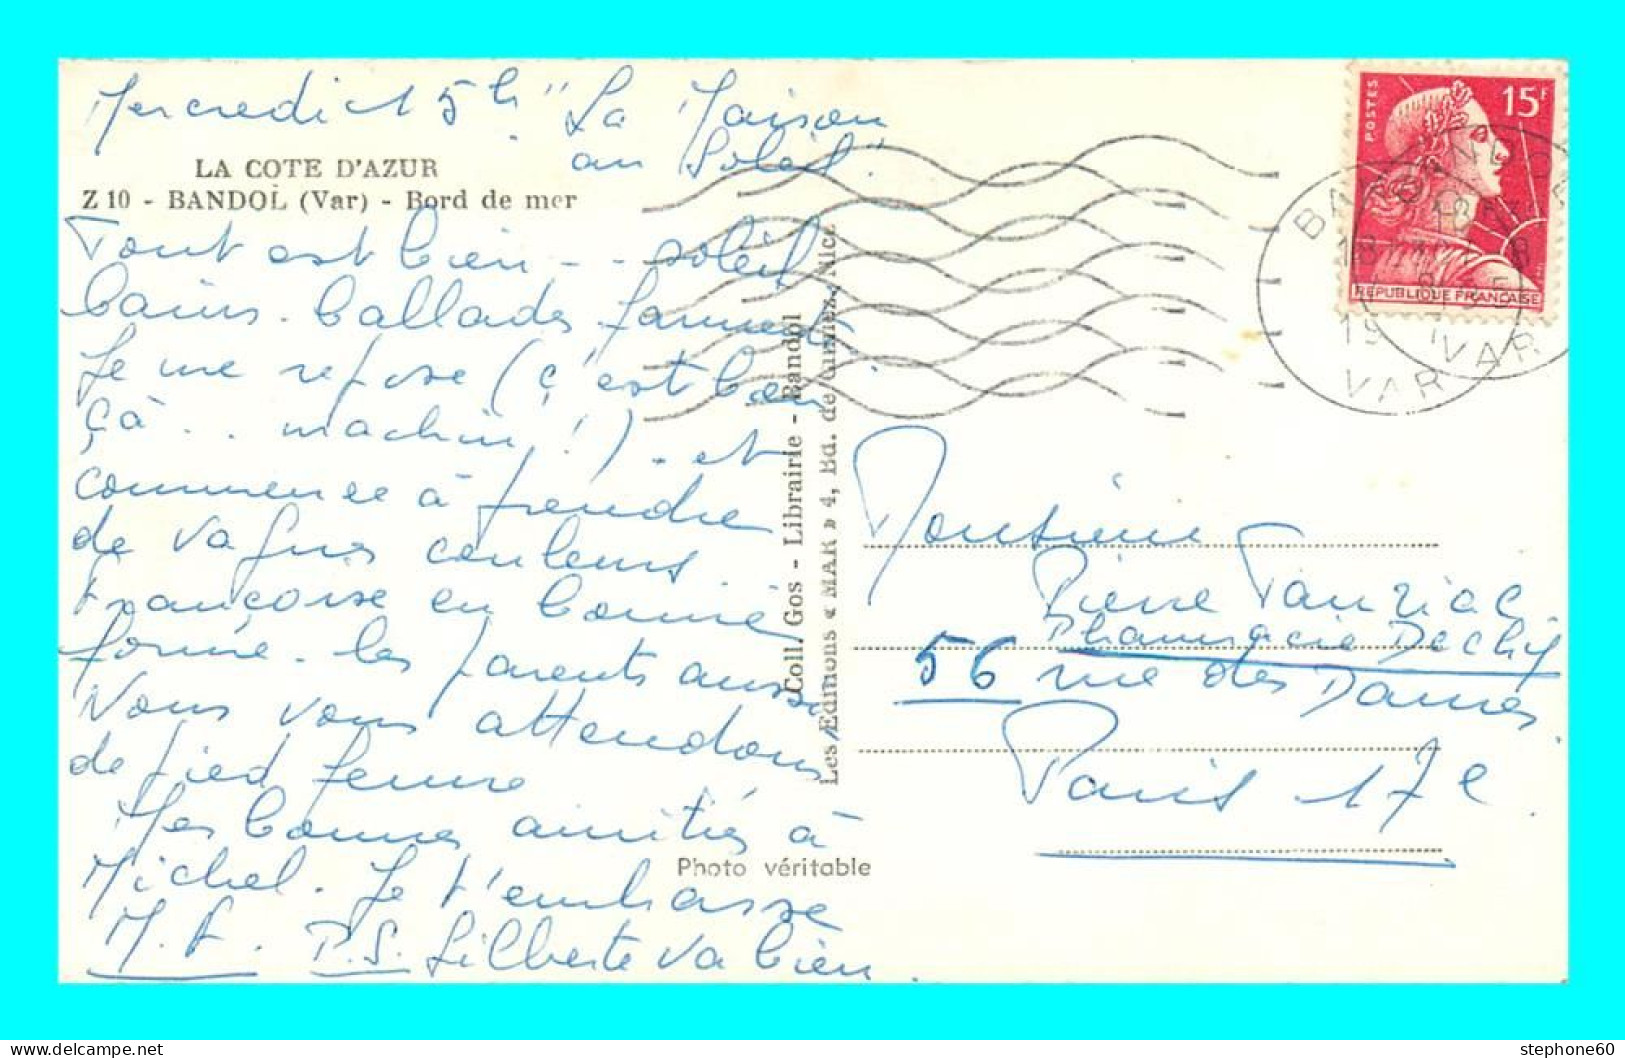 Mercredi 15h "La Maison
au Soleil"
LA COTE D'AZUR
Z 10 - BANDOL (Var) - Bord de mer
Tout est bien - - soleil
bains. ballades farniente
Je me repose (c'est bien
çà .. machin!) - et
commence à prendre
de vagues couleurs.
Françoise en bonne
forme. les parents aussi
Nous vous attendons
de pied ferme
Mes bonnes amitiés à
Michel. Je t'embrasse
M.F. P.S. Gilberte va bien.
Coll. Gos - Librairie - Bandol
Les Editions « MAR » 4, Bd. de Nice
Photo véritable
POSTES
15F
REPUBLIQUE FRANÇAISE
BANDOL
VAR
VAR
Monsieur
Pierre
Pharmacie Dechy
56 rue des Dames
Paris 17e
stephone60